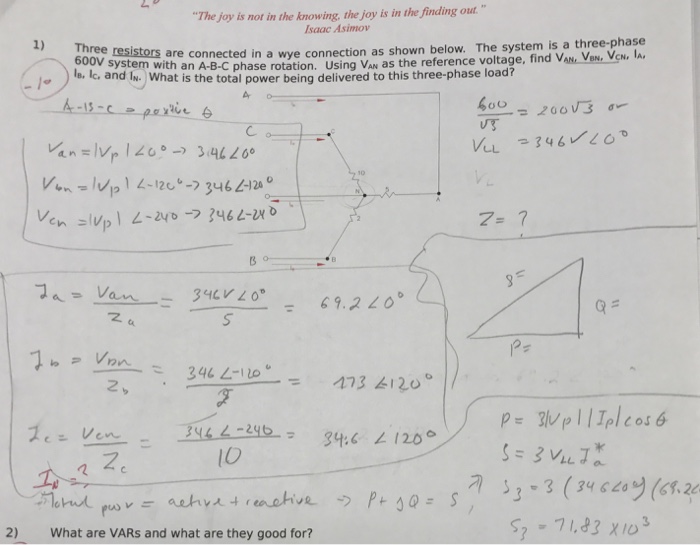 "The joy is not in the knowing, the joy is in the finding out."
Isaac Asimov
1) Three resistors are connected in a wye connection as shown below. The system is a three-phase
600V system with an A-B-C phase rotation. Using VAN as the reference voltage, find VAN, VBN, VCN, IA,
IB, IC, and IN. What is the total power being delivered to this three-phase load?
-10
A-B-C = positive θ
A
C
B
600/√3 = 200√3 or
VLL = 346V∠0°
VL
Van = |Vp|∠0° → 346∠0°
Vbn = |Vp|∠-120° → 346∠-120°
Vcn = |Vp|∠-240 → 346∠-240
Z = ?
Ia = Van/Za = 346V∠0°/5 = 69.2∠0°
S=
Q=
P=
Ib = Vbn/Zb = 346∠-120°/2 = 173∠120°
Ic = Vcn/Zc = 346∠-240/10 = 34.6∠120°
P = 3|Vp||Ip|cosθ
S = 3VLLIa*
IN = ?
Total pwr = active + reactive → P + jQ = S,
S3 = 3(346∠0°)(69.2∠
S3 = 71.83 x10³
2) What are VARs and what are they good for?